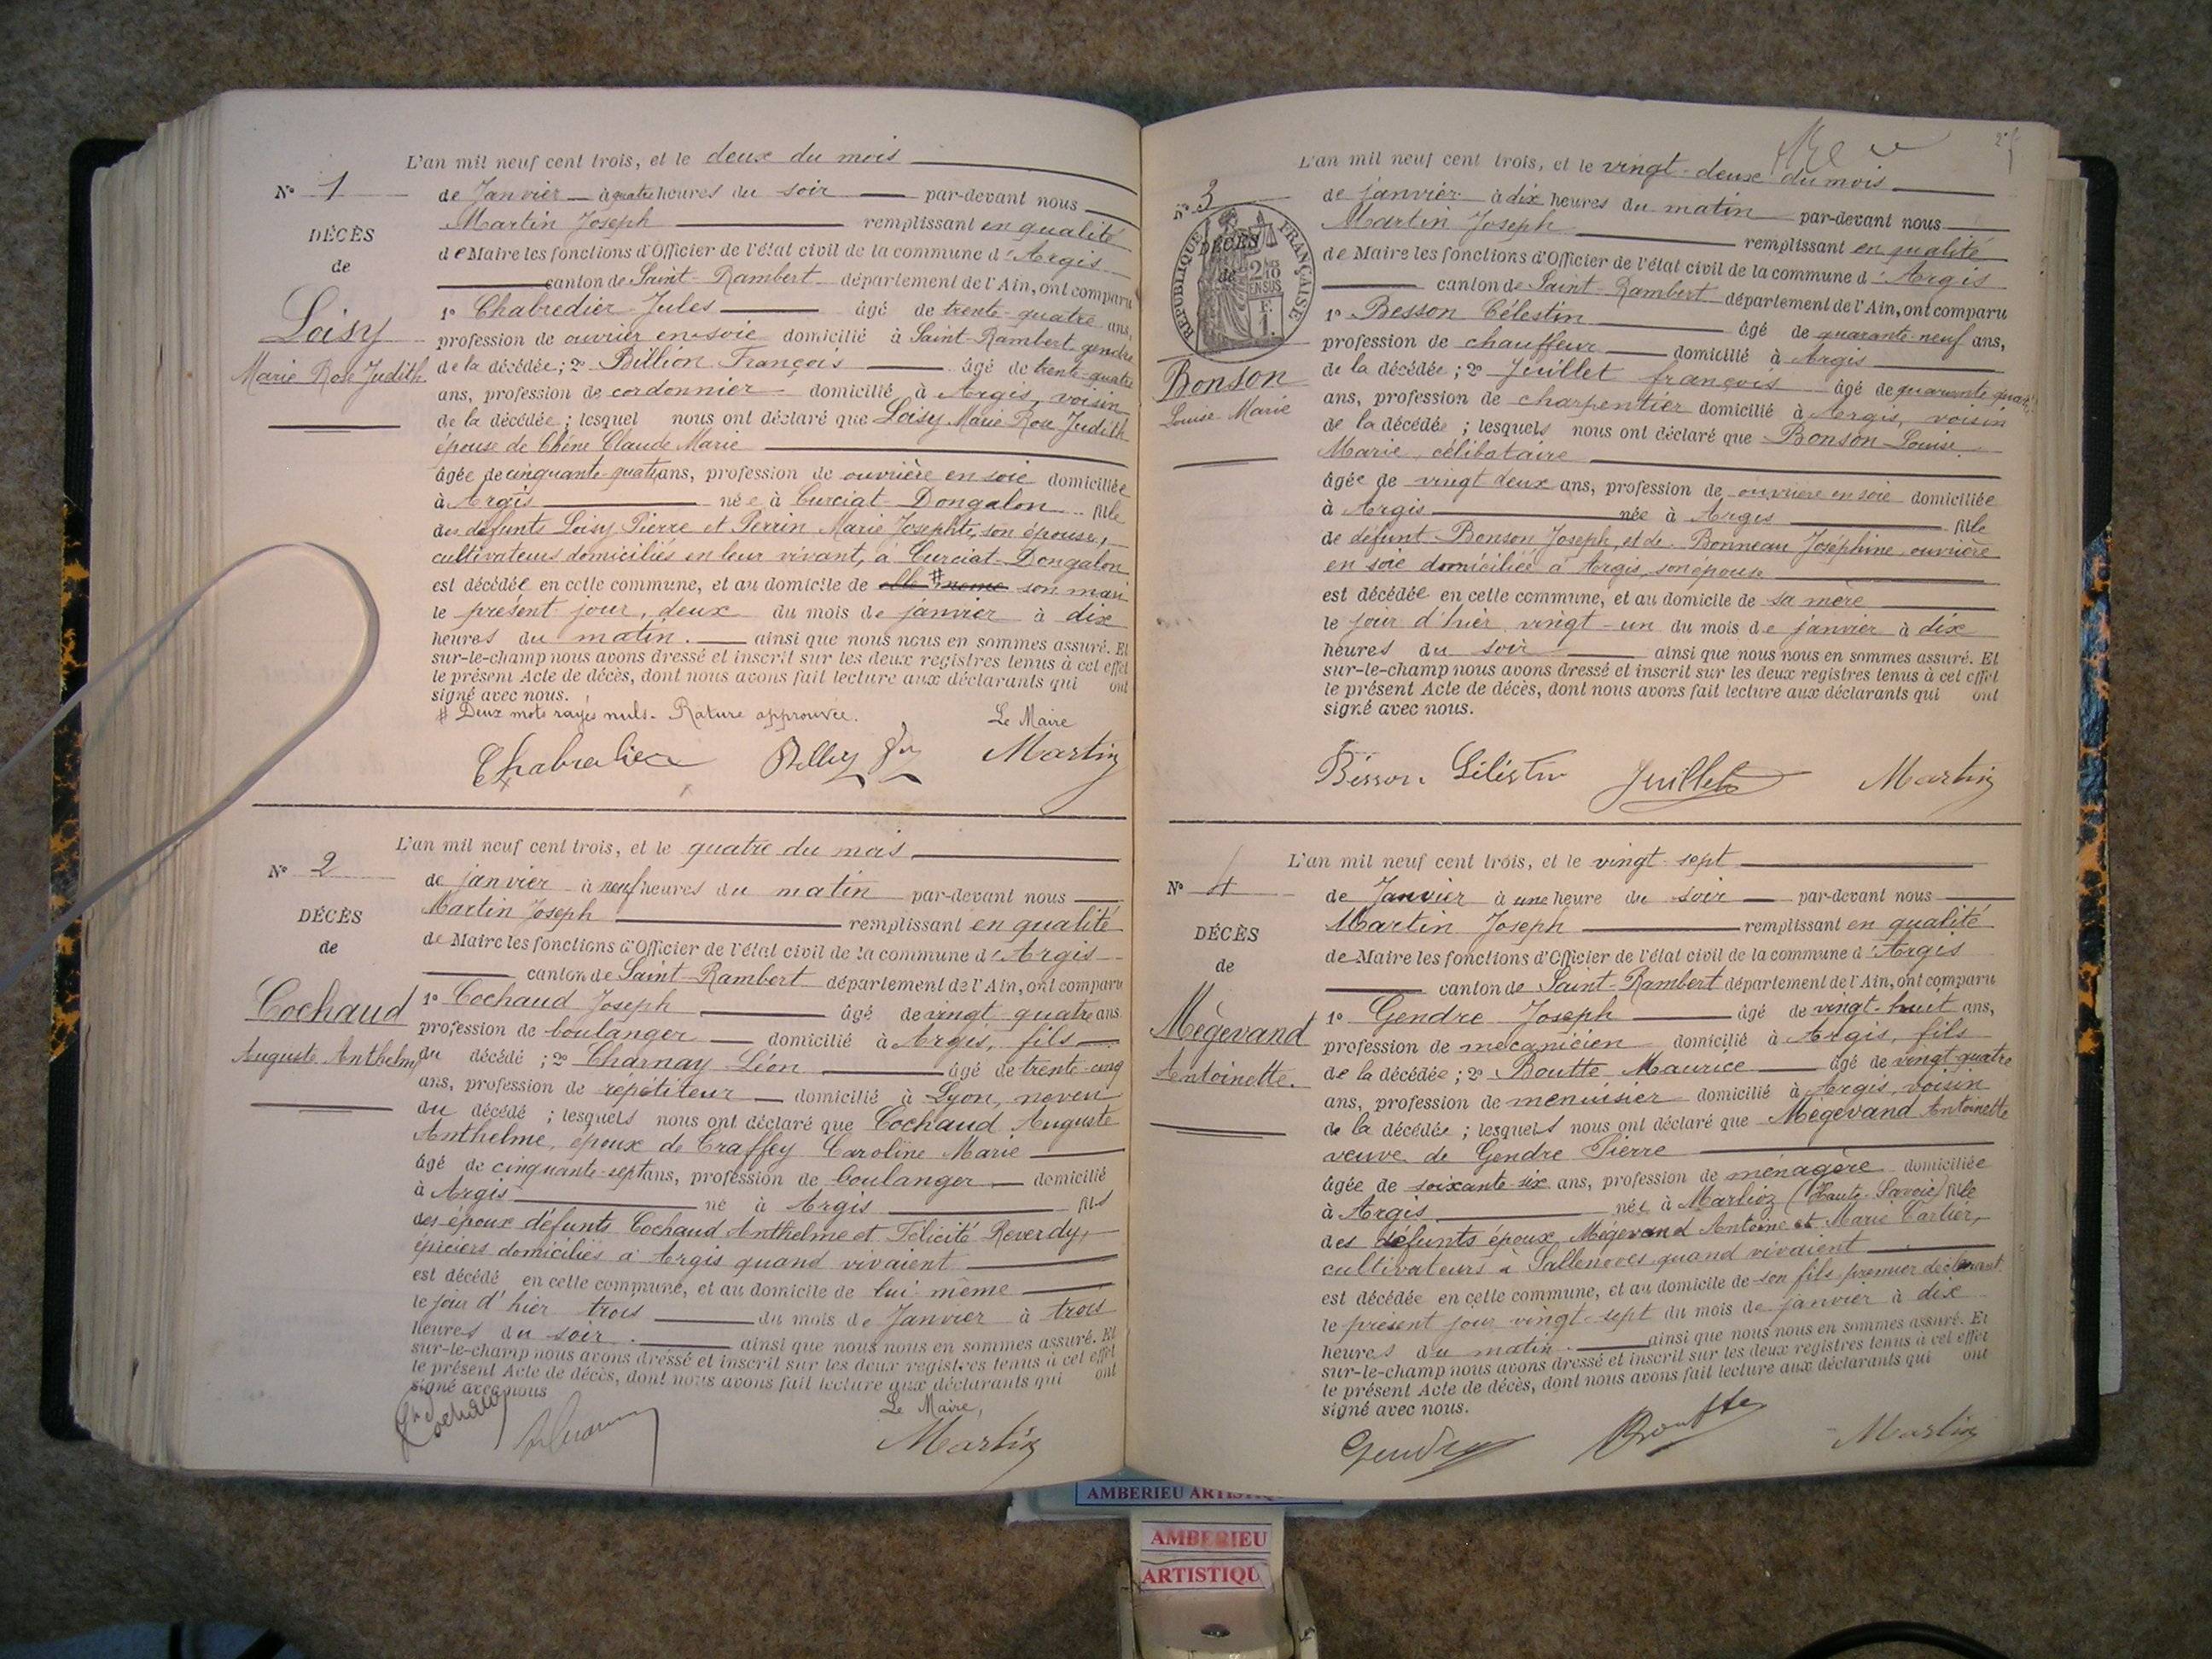 L'an mil neuf cent trois, et le deux du mois
N° 1
de Janvier à quatre heures du soir par-devant nous
Martin Joseph remplissant en qualité
DÉCÈS
de Maire les fonctions d'Officier de l'état civil de la commune d'Argis
de
canton de Saint-Rambert département de l'Ain, ont comparu
1° Chabredier Jules âgé de trente-quatre ans,
Loisy
profession de ouvrier en soie domicilié à Saint-Rambert gendre
Marie Rose Judith
de la décédée ; 2° Billion François âgé de trente-quatre
ans, profession de cordonnier domicilié à Argis, voisin
de la décédée ; lesquel nous ont déclaré que Loisy Marie Rose Judith
épouse de Chêne Claude Marie
âgée de cinquante-quatre ans, profession de ouvrière en soie domiciliée
à Argis née à Curciat-Dongalon fille
des défunts Loisy Pierre et Perrin Marie Josephte, son épouse,
cultivateurs domiciliés en leur vivant, à Curciat-Dongalon
est décédée en cette commune, et au domicile de son mari
le présent jour, deux du mois de janvier à dix
heures du matin. ainsi que nous nous en sommes assuré. Et
sur-le-champ nous avons dressé et inscrit sur les deux registres tenus à cet effet
le présent Acte de décès, dont nous avons fait lecture aux déclarants qui ont
signé avec nous.
# Deux mots rayés nuls. Rature approuvée. Le Maire
Martin
L'an mil neuf cent trois, et le quatre du mois
N° 2
de janvier à neuf heures du matin par-devant nous
Martin Joseph remplissant en qualité
DÉCÈS
de Maire les fonctions d'Officier de l'état civil de la commune d'Argis
de
canton de Saint-Rambert département de l'Ain, ont comparu
Cochaud
1° Cochaud Joseph âgé de vingt-quatre ans
profession de boulanger domicilié à Argis, fils
Auguste Anthelme
du décédé ; 2° Charnay Léon âgé de trente-cinq
ans, profession de répétiteur domicilié à Lyon, neveu
du décédé ; lesquels nous ont déclaré que Cochaud Auguste
Anthelme, époux de Traffey Caroline Marie
âgé de cinquante-sept ans, profession de boulanger domicilié
à Argis né à Argis fils
des époux défunts Cochaud Anthelme et Félicité Reverdy,
épiciers domiciliés à Argis quand vivaient
est décédé en cette commune, et au domicile de lui-même
le jour d'hier trois du mois de Janvier à trois
heures du soir. ainsi que nous nous en sommes assuré. Et
sur-le-champ nous avons dressé et inscrit sur les deux registres tenus à cet effet
le présent Acte de décès, dont nous avons fait lecture aux déclarants qui ont
signé avec nous
Le Maire,
Cochaud
Martin
L'an mil neuf cent trois, et le vingt-deux du mois
N° 3
de janvier à dix heures du matin par-devant nous
Martin Joseph remplissant en qualité
DÉCÈS
de
RÉPUBLIQUE FRANÇAISE
2/10 EN SUS
de Maire les fonctions d'Officier de l'état civil de la commune d'Argis
canton de Saint-Rambert département de l'Ain, ont comparu
1° Besson Célestin âgé de quarante-neuf ans,
profession de chauffeur domicilié à Argis
Bonson
de la décédée ; 2° Juillet françois âgé de quarante quatre
Louise Marie
ans, profession de charpentier domicilié à Argis, voisin
de la décédée ; lesquels nous ont déclaré que Bonson Louise
Marie, célibataire
âgée de vingt deux ans, profession de ouvrière en soie domiciliée
à Argis née à Argis fille
de défunt Bonson Joseph, et de Bonneau Joséphine ouvrière
en soie domiciliée à Argis, son épouse
est décédée en cette commune, et au domicile de sa mère
le jour d'hier vingt-un du mois de janvier à dix
heures du soir ainsi que nous nous en sommes assuré. Et
sur-le-champ nous avons dressé et inscrit sur les deux registres tenus à cet effet
le présent Acte de décès, dont nous avons fait lecture aux déclarants qui ont
signé avec nous.
Besson Célestin Juillet Martin
L'an mil neuf cent trois, et le vingt-sept
N° 4
de Janvier à une heure du soir par-devant nous
Martin Joseph remplissant en qualité
DÉCÈS
de Maire les fonctions d'Officier de l'état civil de la commune d'Argis
de
canton de Saint-Rambert département de l'Ain, ont comparu
Mégevand
1° Gendre Joseph âgé de vingt-huit ans,
profession de mécanicien domicilié à Argis, fils
Antoinette.
de la décédée ; 2° Boutte Maurice âgé de vingt-quatre
ans, profession de menuisier domicilié à Argis, voisin
de la décédée ; lesquels nous ont déclaré que Mégevand Antoinette
veuve de Gendre Pierre
âgée de soixante-six ans, profession de ménagère domiciliée
à Argis née à Marlioz (Haute-Savoie) fille
des défunts époux Mégevand Antoine et Marie Cartier,
cultivateurs à Sallenoves quand vivaient
est décédée en cette commune, et au domicile de son fils premier déclarant
le présent jour vingt-sept du mois de janvier à dix
heures du matin. ainsi que nous nous en sommes assuré. Et
sur-le-champ nous avons dressé et inscrit sur les deux registres tenus à cet effet
le présent Acte de décès, dont nous avons fait lecture aux déclarants qui ont
signé avec nous.
Gendre Boutte Martin
AMBERIEU
AMBERIEU
ARTISTIQU